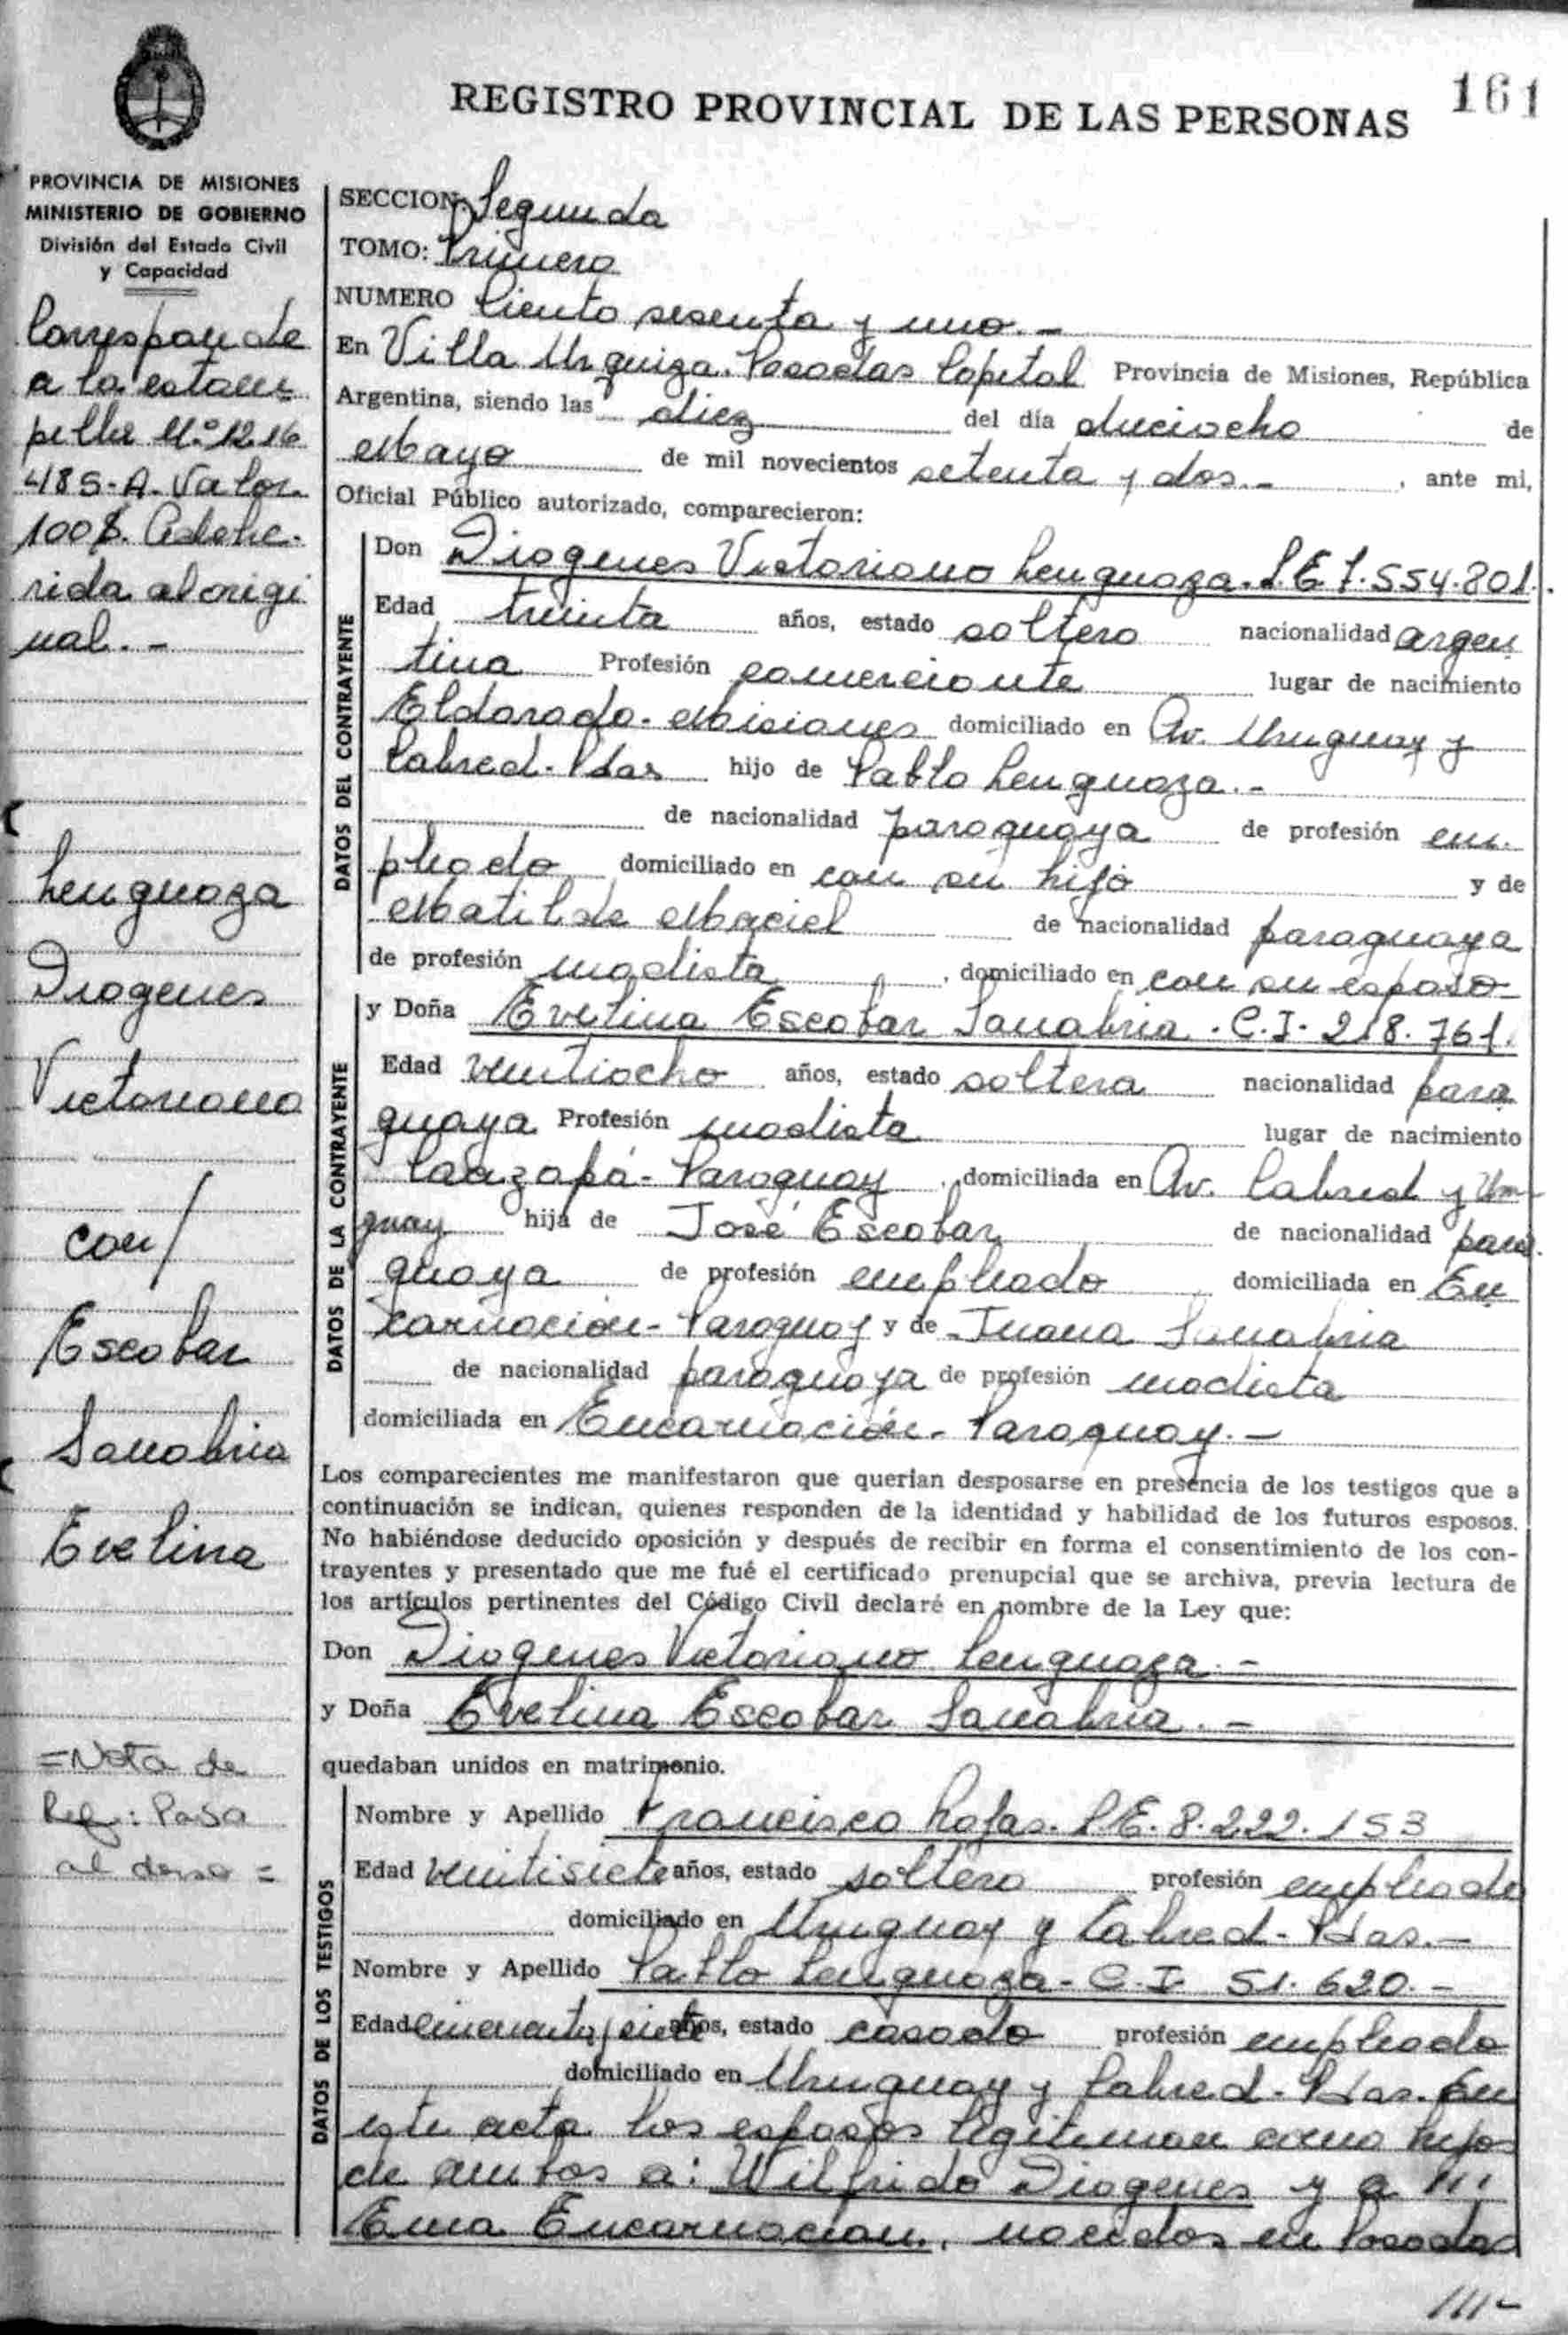 161
REGISTRO PROVINCIAL DE LAS PERSONAS
PROVINCIA DE MISIONES
MINISTERIO DE GOBIERNO
División del Estado Civil
y Capacidad
Corresponde
a la estam
pilla Nº 12.16
485-A. Valor
100$. Adhe-
rida al origi
nal.-
Lenguaza
Diogenes
Victoriano
con/
Escobar
Sanabria
Evelina
=Nota de
Ref: Pasa
al dorso=
SECCION: Segunda
TOMO: Primero
NUMERO Ciento sesenta y uno.-
En Villa Urquiza. Posadas Capital Provincia de Misiones, República
Argentina, siendo las diez del día dieciocho de
Mayo de mil novecientos setenta y dos.- , ante mi,
Oficial Público autorizado, comparecieron:
DATOS DEL CONTRAYENTE
Don Diogenes Victoriano Lenguaza. L.E 7.554.801.
Edad treinta años, estado soltero nacionalidad argen
tina Profesión comerciante lugar de nacimiento
Eldorado-Misiones domiciliado en Av. Uruguay y
Cabred-Pdas hijo de Pablo Lenguaza.-
de nacionalidad paraguaya de profesión em-
pleado domiciliado en con su hijo y de
Matilde Maciel de nacionalidad paraguaya
de profesión modista , domiciliado en con su esposo-
DATOS DE LA CONTRAYENTE
y Doña Evelina Escobar Sanabria. C.I. 218.761.
Edad veintiocho años, estado soltera nacionalidad para
guaya Profesión modista lugar de nacimiento
Caazapá-Paraguay , domiciliada en Av. Cabred y Uru-
guay hija de José Escobar de nacionalidad para
guaya de profesión empleado domiciliada en En
carnación-Paraguay y de Juana Sanabria
de nacionalidad paraguaya de profesión modista
domiciliada en Encarnación-Paraguay.-
Los comparecientes me manifestaron que querían desposarse en presencia de los testigos que a
continuación se indican, quienes responden de la identidad y habilidad de los futuros esposos.
No habiéndose deducido oposición y después de recibir en forma el consentimiento de los con-
trayentes y presentado que me fué el certificado prenupcial que se archiva, previa lectura de
los artículos pertinentes del Código Civil declaré en nombre de la Ley que:
Don Diogenes Victoriano Lenguaza.-
y Doña Evelina Escobar Sanabria.-
quedaban unidos en matrimonio.
DATOS DE LOS TESTIGOS
Nombre y Apellido Francisco Rojas. L.E. 8.222.153
Edad veintisiete años, estado soltero profesión empleado
domiciliado en Uruguay y Cabred-Pdas.-
Nombre y Apellido Pablo Lenguaza-C.I. 51.620.-
Edad cincuenta y siete años, estado casado profesión empleado
domiciliado en Uruguay y Cabred-Pdas. En
este acto los esposos legitiman como hijos
de ambos a: Wilfrido Diogenes y a ///
Ema Encarnacion, nacidos en Posadas
///-